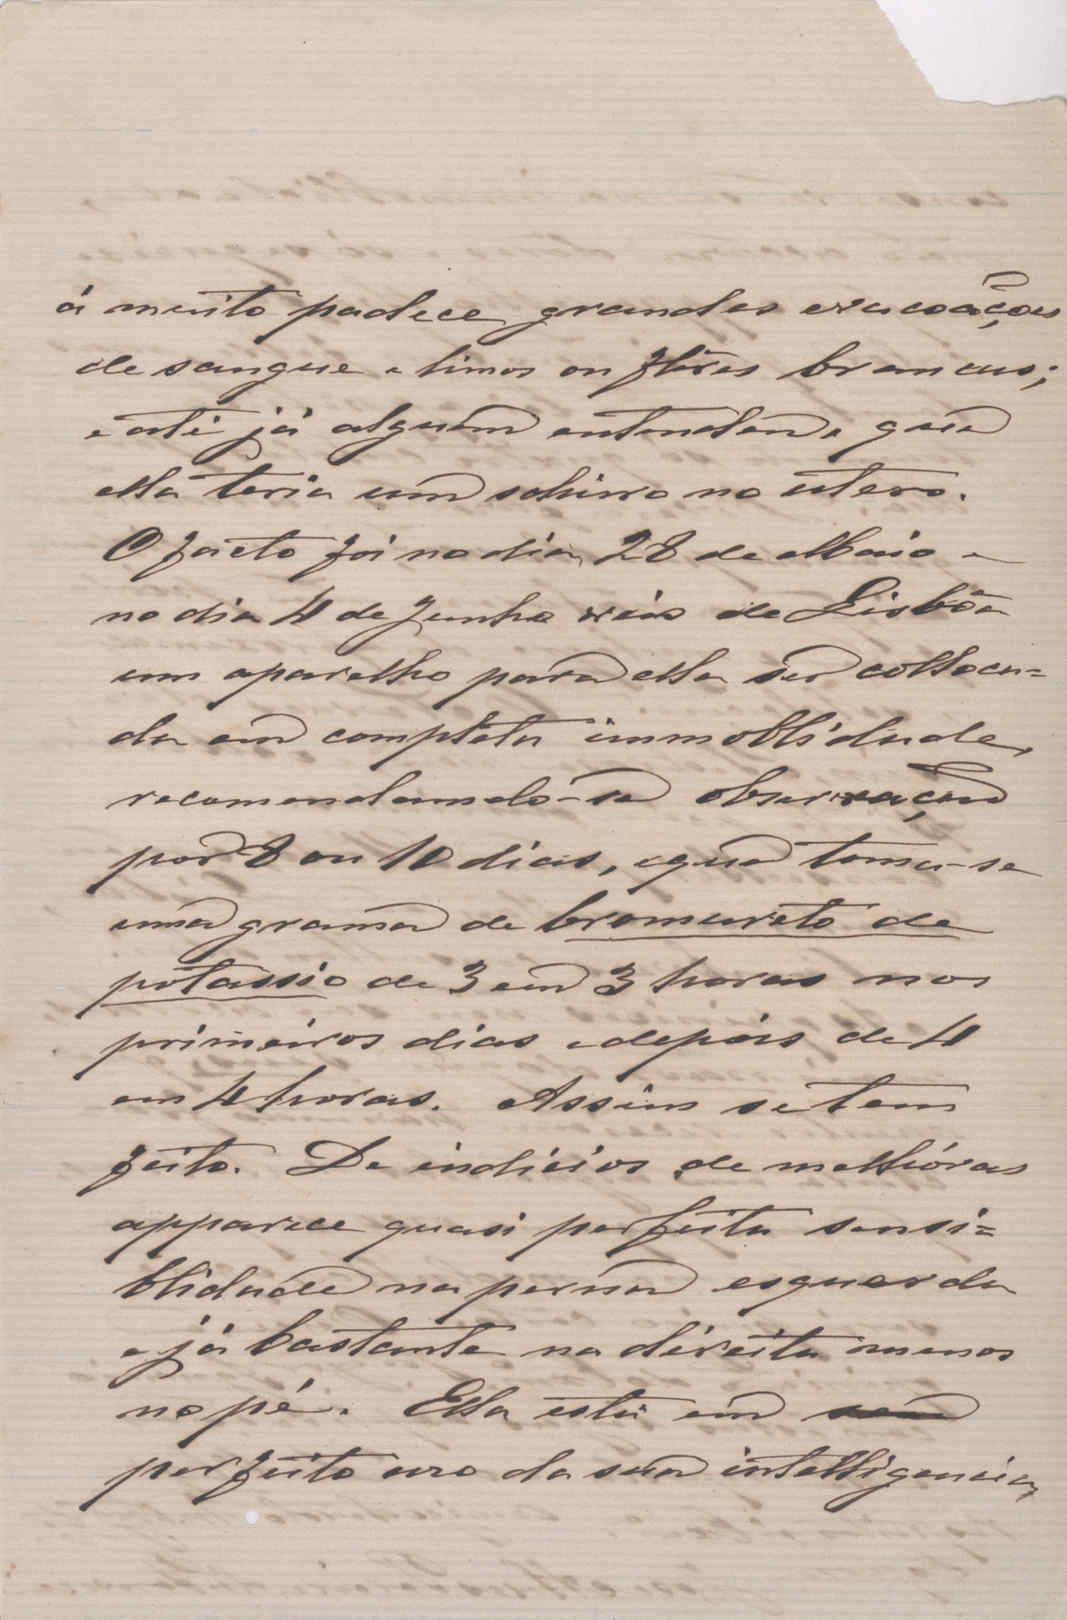 á muito padece grandes evacoações
de sangue e limos ou flôres brancas;
e até já alguem entenden, que
ella teria um schirro no utero.
O facto foi no dia 28 de Maio e
no dia 4 de Junho veio de Lisbôa
um aparelho para ella ser colloca=
da em completa immoblidade,
recomendamdo-se observação
por 8 ou 10 dias, e que toma-se
uma grama de bromureto de
potassio de 3 em 3 horas nos
primeiros dias e depois de 4
em 4 horas. Assim se tem
feito. De indicios de melhóras
apparece quasi perfeita sensi=
blidade na perna esquerda
e já bastante na direita menos
no pé. Ella está em
perfeito uso da sua intelligencia,